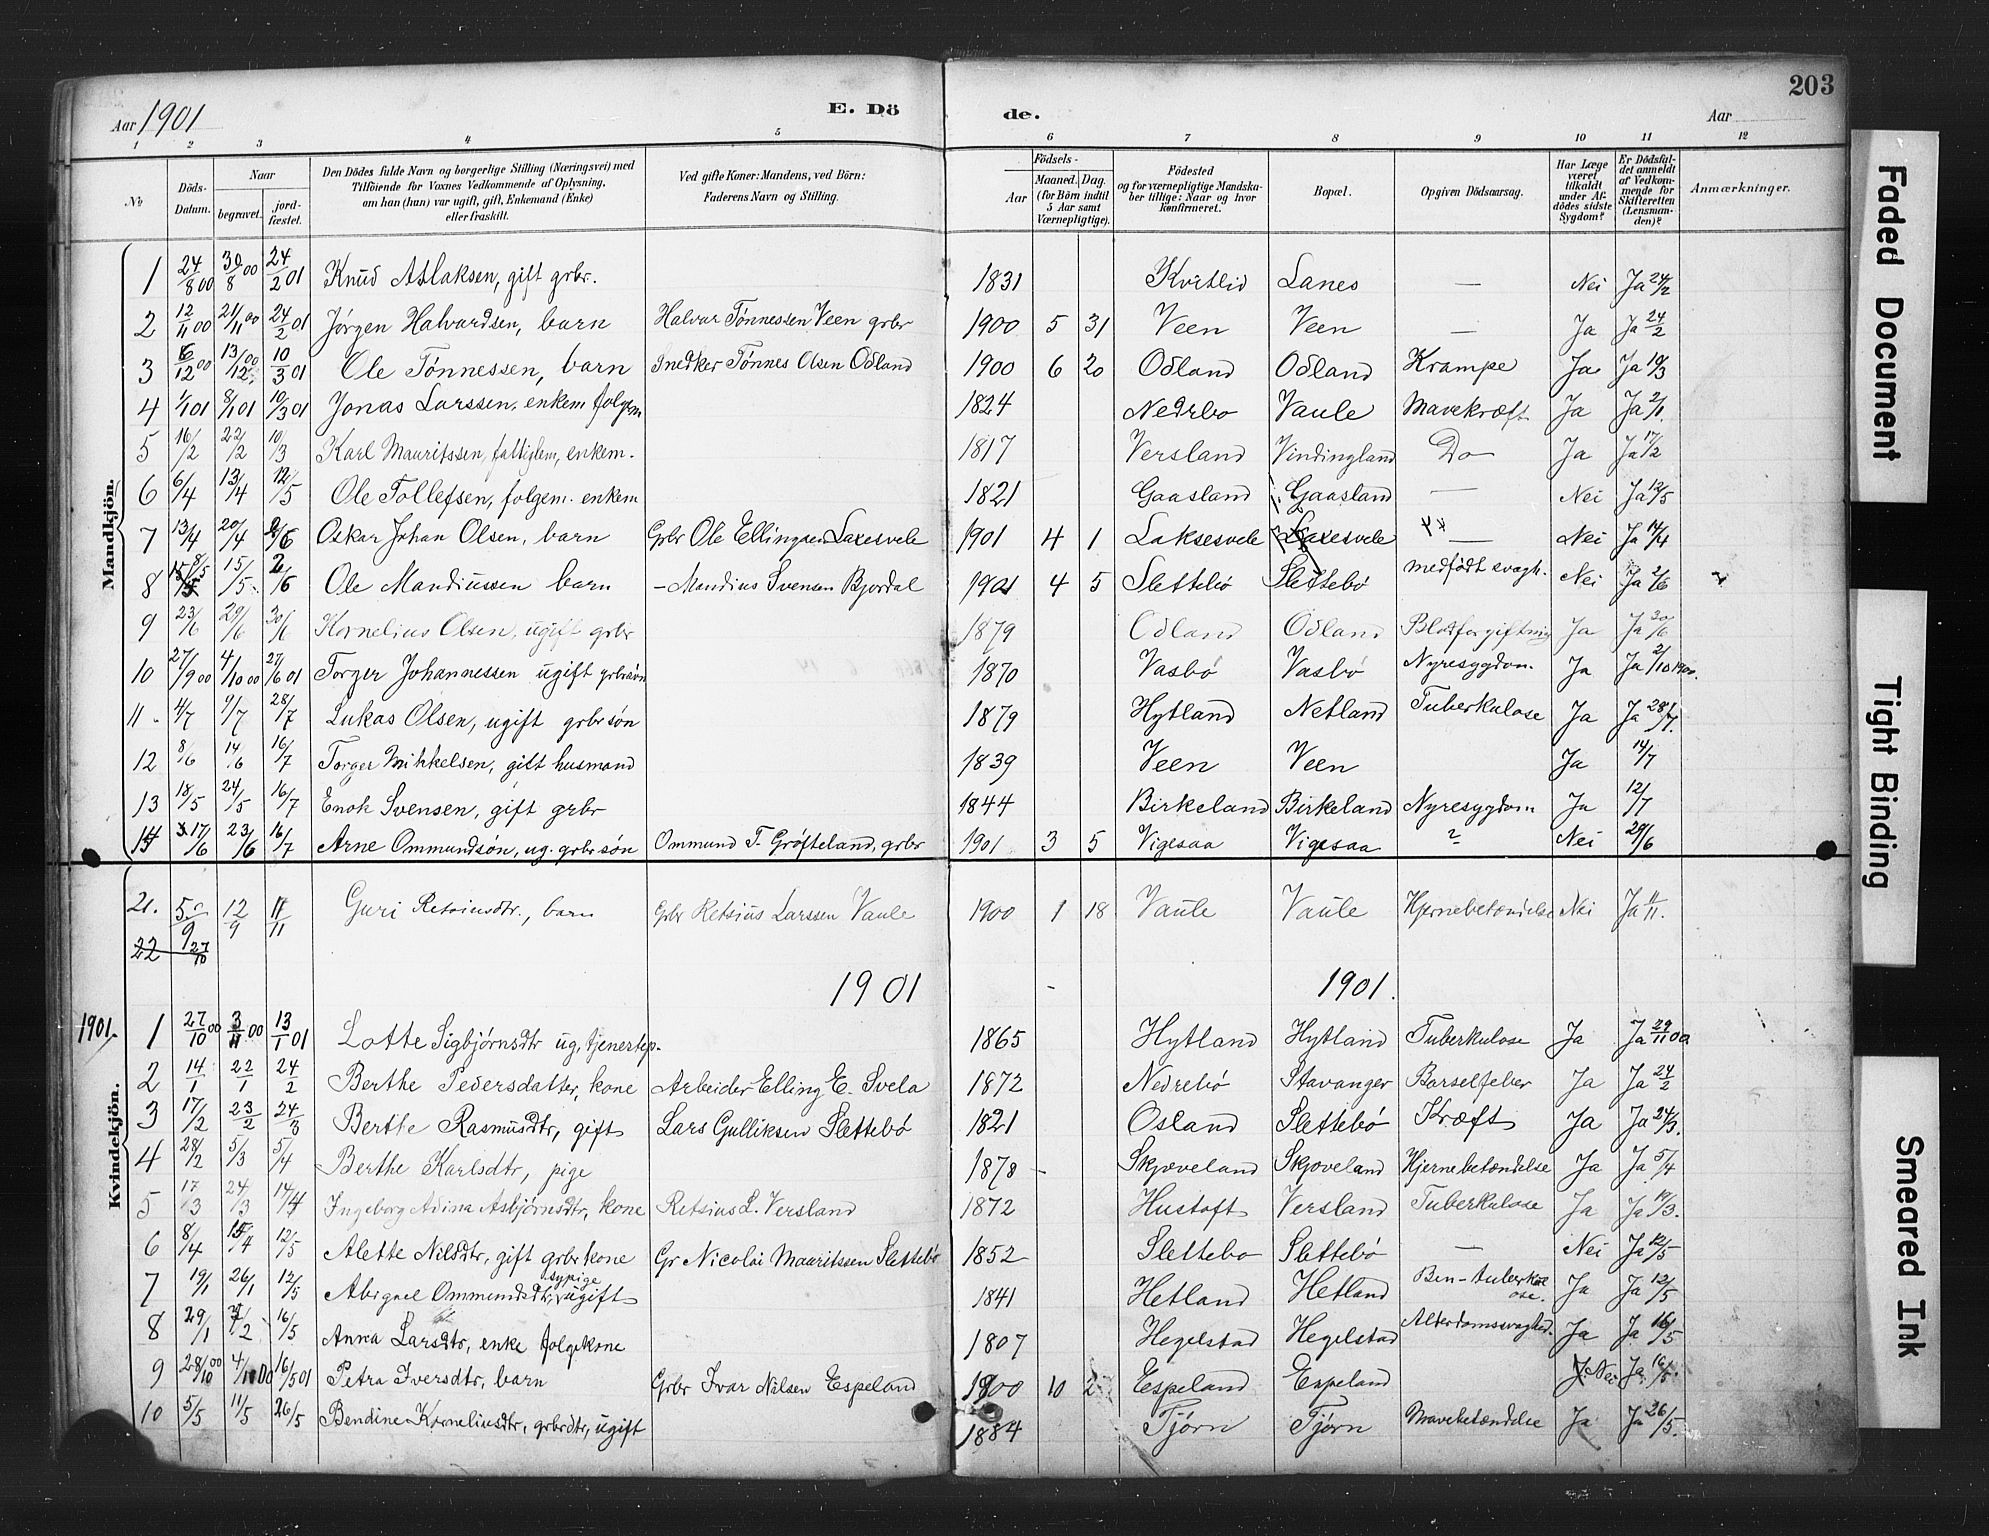 Aar 1901 E. Döde. Aar 203
1 2 3 4 5 6 7 8 9 10 11 12
№ Döds-Datum. Naar begravet. jordfæstet. Den Dödes fulde Navn og borgerlige Stilling (Næringsvei) med Tilföiende for Voxnes Vedkommende af Oplysning, om han (hun) var ugift, gift, Enkemand (Enke) eller fraskilt. Ved gifte Koner: Mandens, ved Börn: Faderens Navn og Stilling. Födsels- Aar Maaned. Dag. (for Börn indtil 5 Aar samt Værnepligtige). Födested og for værnepligtige Mandskaber tillige: Naar og hvor Konfirmeret. Bopæl. Opgiven Dödsaarsag. Har Læge været tilkaldt under Afdödes sidste Sygdom? Er Dödsfaldet anmeldt af Vedkommende for Skifteretten (Lensmanden)? Anmærkninger.
Mandkjön.
1 24/8 00 30/8 00 24/2 01 Knud Atlaksen, gift grbr. 1831 Kvitlid Lanes — Nei Ja 24/2
2 12/11 00 21/11 00 24/2 01 Jórgen Halvardsen, barn Halvar Tónnessen Veen grbr 1900 5 31 Veen Veen — Ja Ja 24/2
3 6/12 00 13/12 00 10/3 01 Ole Tónnessen, barn Snedker Tónnes Olsen Odland 1900 6 20 Odland Odland Krampe Ja Ja 10/3
4 1/1 01 8/1 01 10/3 01 Jonas Larssen, enkem folgem 1824 Nedrbo Vaule Mavekræft Ja Ja 2/1.
5 16/2 22/2 10/3 Karl Mauritssen, fattiglem, enkem. 1817 Versland Vindingland Do Ja Ja 17/2
6 6/4 13/4 12/5 Ole Tollefsen, folgem. enkem 1821 Gaasland Gaasland — Nei Ja 12/5
7 13/4 20/4 2/6 Oskar Johan Olsen, barn Grbr Ole Ellingsen Laxesvele 1901 4 1 Laksesvele Laxesvele — Nei Ja 14/4
8 8/5 15/5 2/6 Ole Mandiussen barn — Mandius Svensen Bjordal 1901 4 5 Slettebó Slettebó medfódt svagh. Nei Ja 2/6
9 23/6 29/6 30/6 Kornelius Olsen, ugift grbr 1879 Odland Odland Blodforgiftning Ja Ja 30/6
10 27/9 00 4/10 00 27/6 01 Torger Johannessen ugift grbrsón 1870 Vasbó Vasbó Nyresygdom Ja Ja 2/10 1900.
11 4/7 9/7 28/7 Lukas Olsen, ugift grbr són 1879 Hytland Netland Tuberkulose Ja Ja 28/7.
12 8/6 14/6 16/7 Torger Mihkelsen, gift husmand 1839 Veen Veen Ja 14/7
13 18/5 24/5 16/7 Enok Svensen, gift grbr 1844 Birkeland Birkeland Nyresygdom Ja 12/7
14 17/6 23/6 16/7 Arne Ommundsón, ug. grbr són Ommund T. Grófteland, grbr 1901 3 5 Vigesaa Vigesaa ? Nei 29/6
21. 5/9 12/9 11/11 Guri Retsiusdtr., barn Grbr Retsius Larssen Vaule 1900 1 18 Vaule Vaule Hjernebetændelse Nei Ja 11/11.
22 27/10
1901 1901.
1901. Kvindekjön.
1 27/10 00 3/11 00 13/1 01 Lotte Sigbjórnsdtr ug, tjenertep. 1865 Hytland Hytland Tuberkulose Ja Ja 29/11 00
2 14/1 22/1 24/2 Berthe Pedersdatter, kone Arbeider Elling E. Svela 1872 Nedrebó Stavanger Barselfeber Ja Ja 24/2
3 17/2 23/2 24/3 Berthe Rasmusdtr, gift Lars Gulliksen Slettebó 1821 Osland Slettebó Kræft Ja Ja 24/3.
4 28/2 5/3 5/4 Berthe Karlsdtr, pige 1878 — Skjæveland Skjæveland Hjernebetændelse Ja Ja 5/4
5 17/3 24/3 14/4 Ingeborg Adina Asbjórnsdtr, kone Retsius L. Versland 1872 Hustoft Versland Tuberkulose Ja Ja 19/3.
6 8/4 15/4 12/5 Alette Nilsdtr, gift grbr kone Gr Nicolai Mauritssen Slettebó 1852 Slettebo Slettebó — Nei Ja 12/5
7 19/1 26/1 12/5 Abigael Ommundsdtr, sypige ugift 1841 Hetland Hetland Ben-tuberkulose. Ja Ja 12/5
8 29/1 7/2 16/5 Anna Larsdtr, enke folgekone 1807 Hegelstad Hegelstad Alderdomssvaghed. Ja Ja 16/5
9 28/10 00 4/11 00 16/5 01 Petra Iversdtr, barn Grbr Ivar Nilsen Espeland 1900 10 2 Espeland Espeland Nei Ja. 16/5.
10 5/5 11/5 26/5 Bendine Korneliusdtr, grbrdtr, ugift 1884 Tjórn Tjórn Mavebetændelse Ja Ja 26/5.
Faded Document
Tight Binding
Smeared Ink